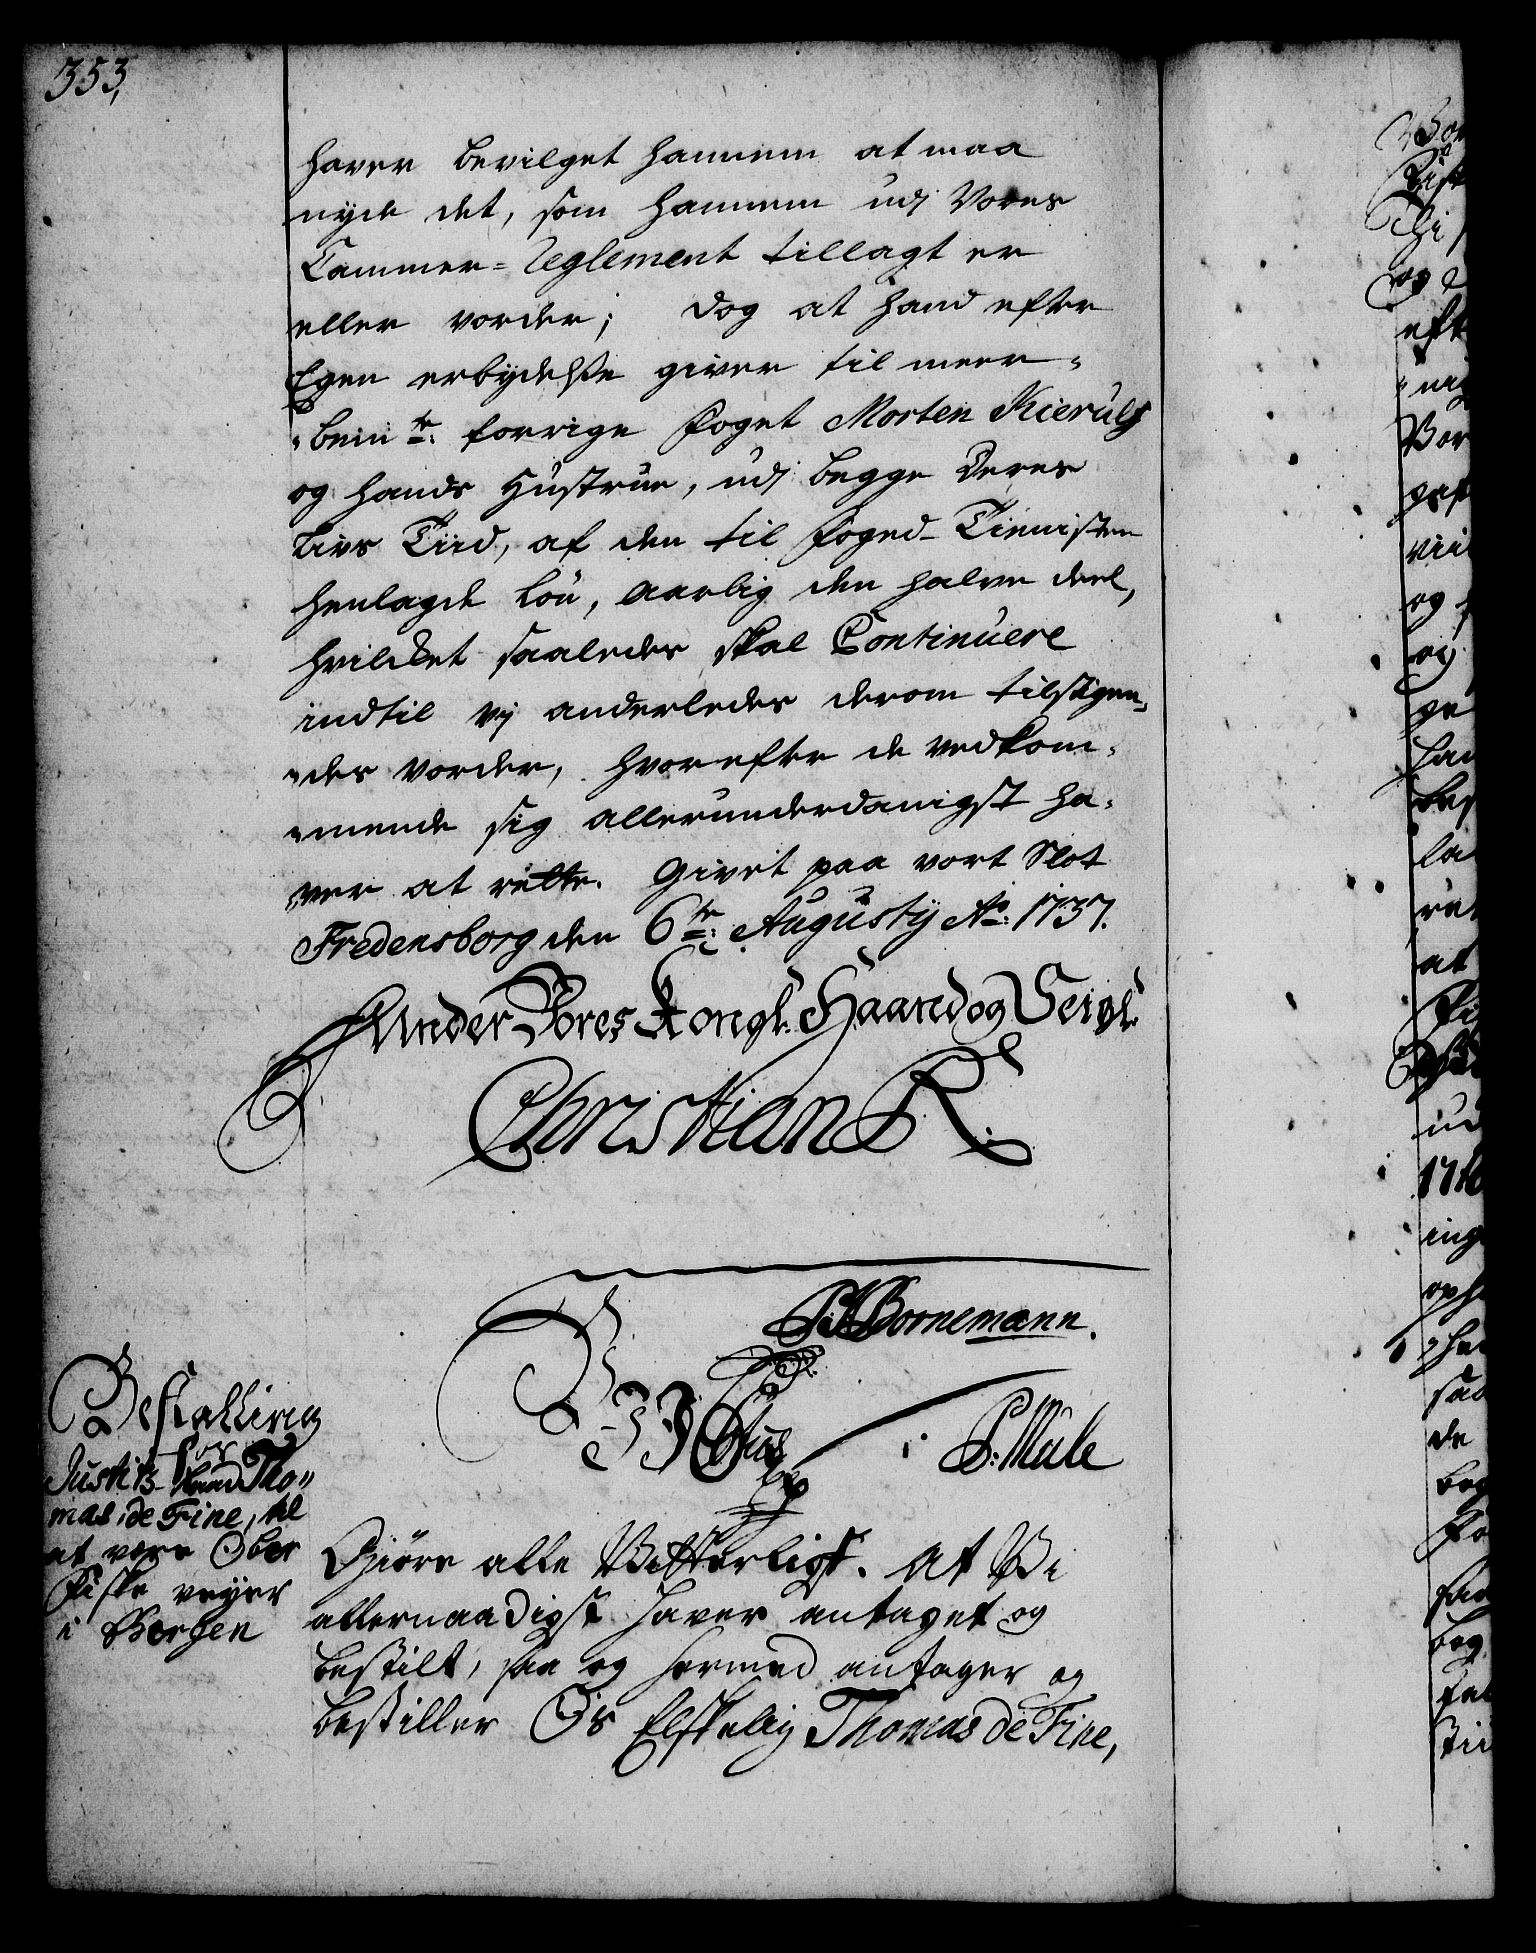 353,
haver bevilget hannem at maa
nyde det, som hannem udj Vores
Cammer=Reglement tillagt er
eller vorder; dog at hand efter
Egen erbydelße giver til meer„
„bem.te: forrige Foget Morten Kierulf
og hands Hustrue, udj begge Deres
Livs Tiid, af den til Foged-Tienisten
henlagde Løn, Aarlig den halve deel,
hvilcket saaledes skal Continuere
indtil vj anderledes derom tilsigen„
„des vorder, hvorefter de vedkom„
„mende sig allerunderdanigst ha„
„ver at rette. Givet paa vort Slot
Fredensborg den 6te: Augustij Ao: 1737.
Under Vores Kongl: Haand og Seigl:
Christian R.
Bornemann.
P: Mule
Bestalling
for
Justitz-Raad Tho„
mas de Fine, til
at være Ober
Fiske veyer
i Bergen
Giøre alle Vitterligt. At Vi
allernaadigst haver antaget og
bestilt, saa og hermed antager og
bestiller Os Elskelig Thomas de Fine,